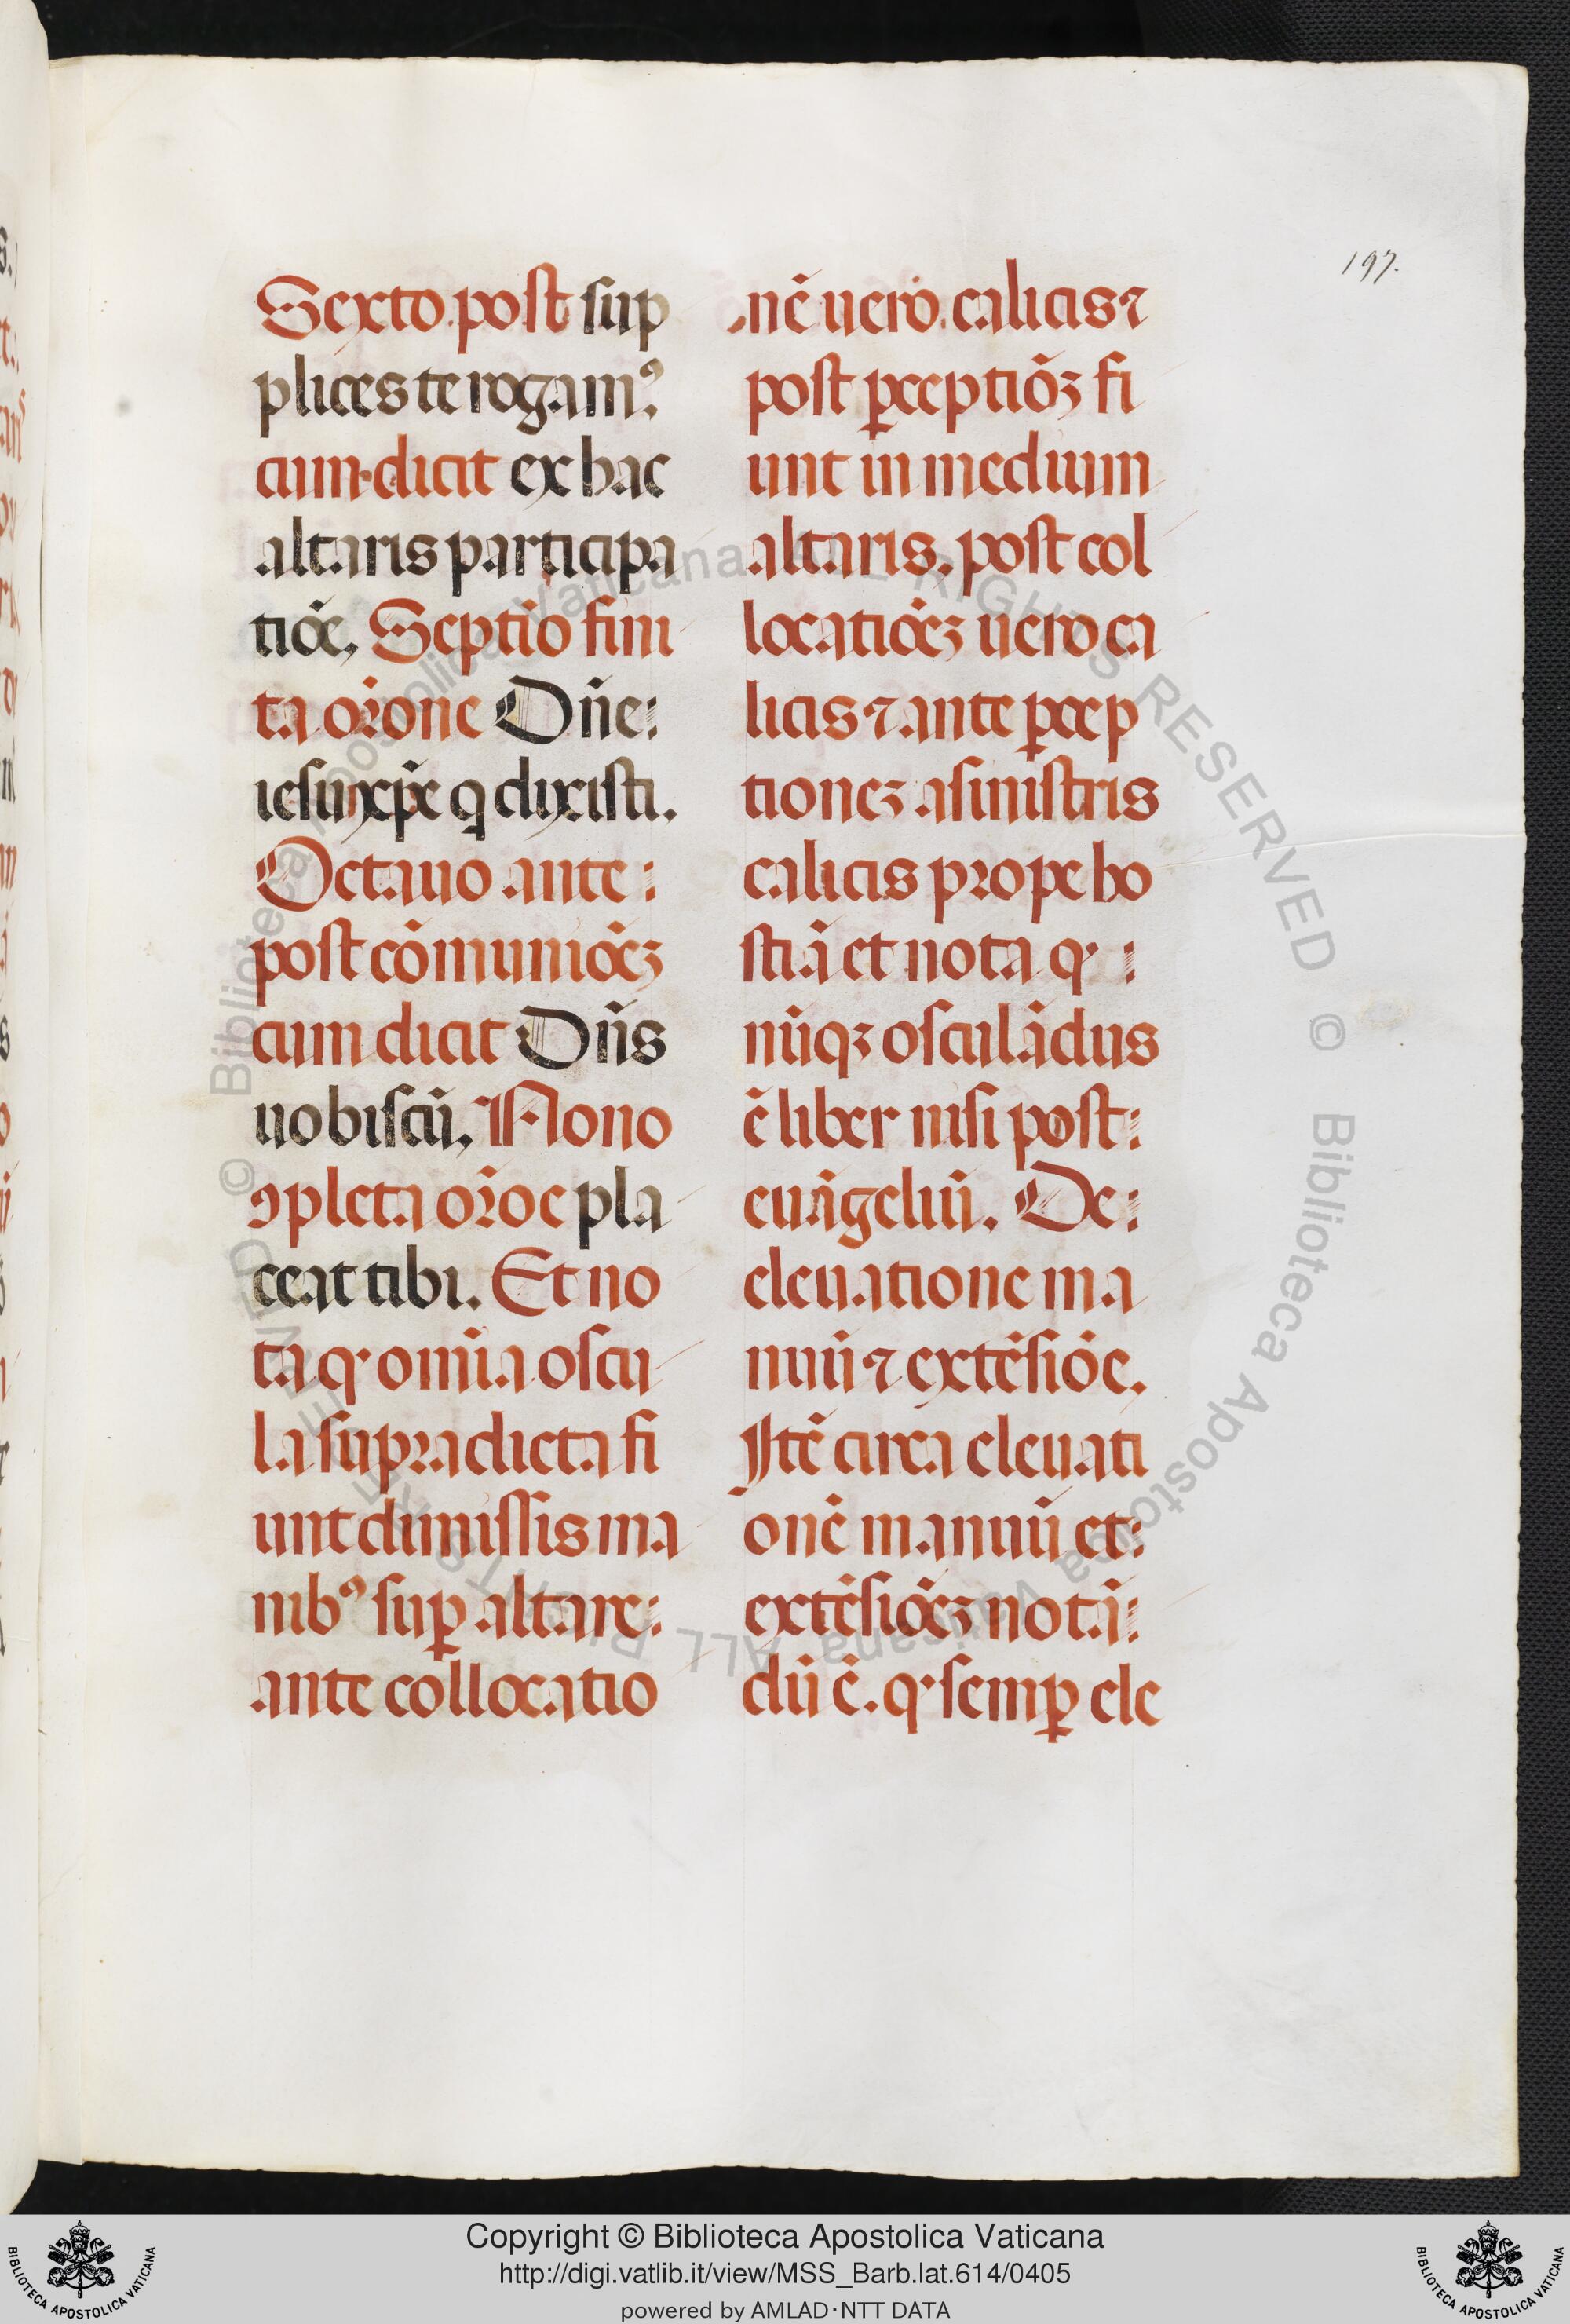 197.
Sexto post sup
plices te rogamꝰ.
cum dicit ex hac
altaris participa
tiōe. Septīo fini
ta orōne Dn̄e
iesu xp̄e q dixisti.
Octauo ante
post cōmuniōeꝫ
cum dicit Dn̄s
uobiscū. Nono
ꝯpleta orōe pla
ceat tibi. Et no
ta q· omīa oscu
la supradicta fi
unt dimissis ma
nibꝰ suꝑ altare
ante collocatio
nē uero calicis ⁊
post ꝑceptiōꝫ fi
unt in medium
altaris. post col
locatiōeꝫ uero ca
licis ⁊ ante ꝑcep
tioneꝫ a sinistris
calicis prope ho
stiā et nota q·
nūqꝫ osculādus
ē liber nisi post
euāgeliū. De
eleuatione ma
nuū ⁊ extēsiōe.
Itē circa eleuati
onē manuū et
extēsiōeꝫ notā
dū ē. q· semꝑ ele
© Biblioteca Apostolica Vaticana ALL RIGHTS RESERVED © Biblioteca Apostolica Vaticana ALL RIGHTS RESERVED
Copyright © Biblioteca Apostolica Vaticana
http://digi.vatlib.it/view/MSS_Barb.lat.614/0405
powered by AMLAD·NTT DATA
BIBLIOTECA APOSTOLICA VATICANA
BIBLIOTECA APOSTOLICA VATICANA